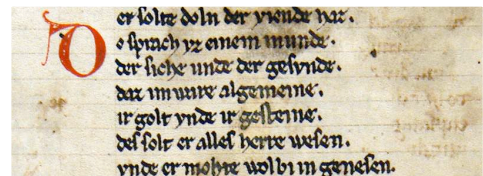 er solte doln der viende haz.
Do sprach vz einem munde.
der siche unde der gesvnde.
daz im wære algemeine.
ir golt vnde ir gesteine.
des solt er alles herre wesen.
vnde er mohte wol bi in genesen.